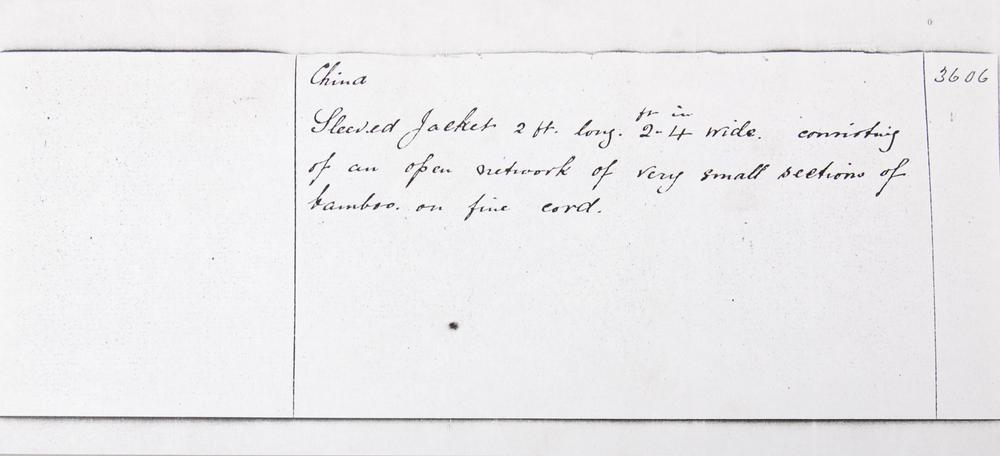 China 3606
Sleeved Jacket 2 ft. long. 2 ft - 4 in wide. consisting
of an open network of very small sections of
bamboo. on fine cord.